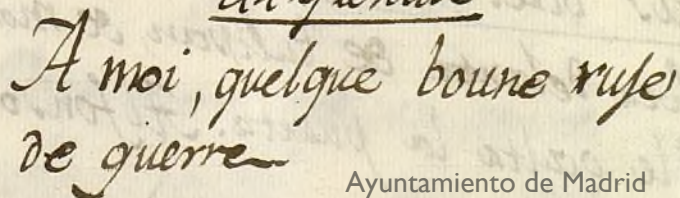 A moi, quelque boune ruse
de guerre
Ayuntamiento de Madrid